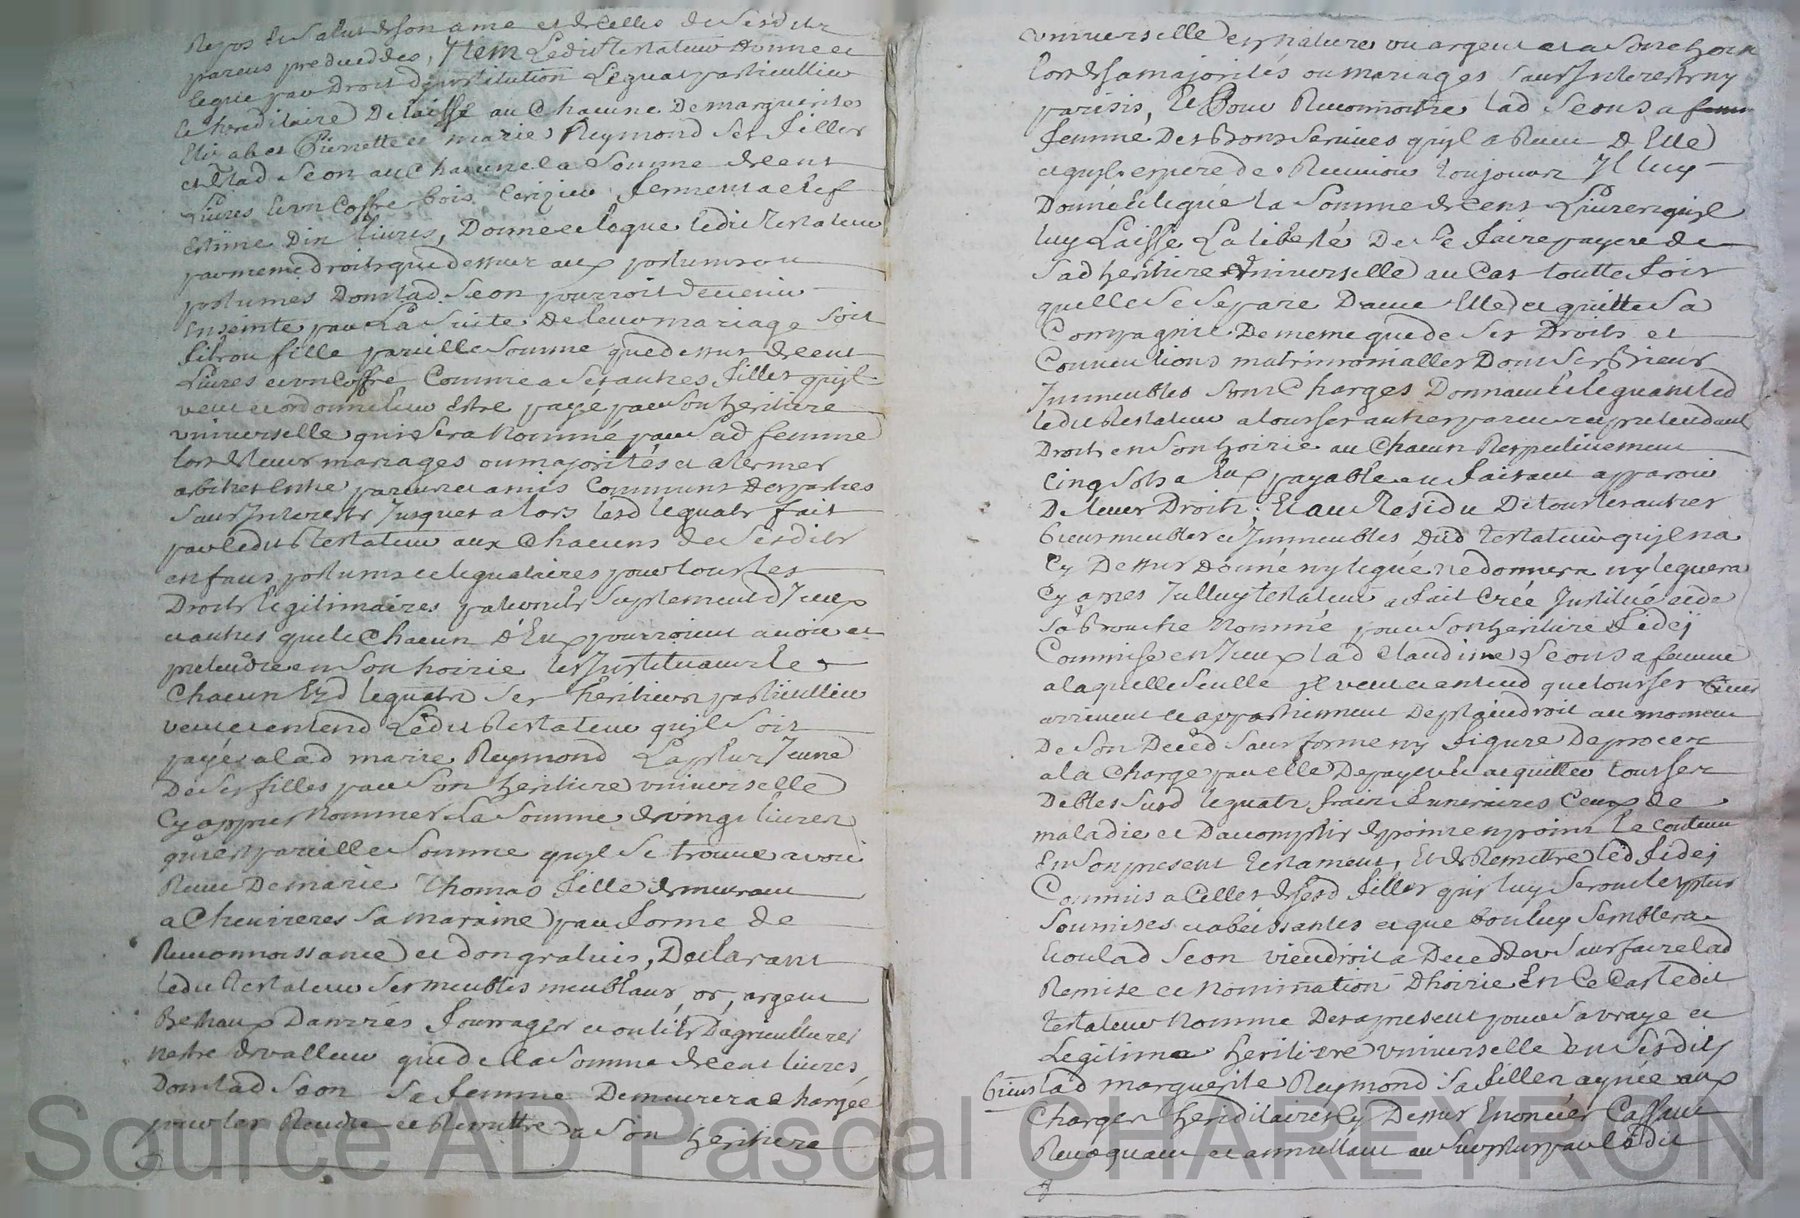 Repos et Salut de son ame et de celles de Sesdits
parens predeceddes, Item Ledit Testateur donne et
legue par Droit d'institution Leguat particullier
et hereditaire Delaisse au Chacune De marguerites
Elizabet Pierrette et marie Reymond Ses Filles
et de lad Seon au Chacune la Somme de cent
Livres et un Coffre bois Cerizier fermant a clef
Estime Dix livres, Donne et legue ledit Testateur
par meme droit que dessus aux postumes ou
postumes Dont lad Seon pourroit devenir
Enseinte par La Suite de leur mariage Soit
fils ou fille pareille Somme que dessus de cent
Livres et un Coffre Comme a Ses autres Filles quil
veut et ordonne leur Estre payé par Son heritiere
universelle qui Sera Nommé par Sad femme
lors de leurs mariages ou majorités et a termes
arbitres entre parens et amis Communs des parties
Sans Interests Jusques a lors lesd leguats fait
par ledit testateur aux Chacuns de Sesdits
enfans postums et leguataires pour tous les
Droits legitimaires paternels Suplement d'Iceux
et autres que le Chacun d'Eux pourroient avoir et
pretendre en Son hoirie les Instituant le
Chacun Ezd leguats Ses heritiers particulliers
veut et entend Ledit testateur quil Soit
payé a lad marie Reymond La plus Jeune
De Ses filles par Son heritiere universelle
Cy appres Nommer La Somme de vingt livres
qui est pareille Somme quil Se trouve avoir
Reçue De marie Thomas fille de
a Chevrieres Sa maraine par forme de
Reconnoissance et don gratuis, Declarant
ledit testateur Ses meubles meublans, or, argent
Bestiaux Danrées Fourrages et outils D'agriculture
n'estre de valleur que de la Somme de cent livres
Dont lad Seon Sa femme Demeurera Chargée
pour les Rendre et Remettre a Son heritiere
universelle en nature ou argent et a Son choix
lors de Sa majorités ou mariages Sans Interests ny
parisis, Et Pour Reconnoitre lad Seon Sa
femme Des Bons Services quil a Reçu D'Elle
et quil espere de Recevoir toujours Il luy
Donne et legue la Somme de cent Livres quil
luy Laisse La liberté De Se faire payer de
Sad heritiere universelle au Cas toutte fois
quelle Se Separe Davec Elle et quitte Sa
Compagnie De meme que de Ses Droits et
Conventions matrimonialles Dont Ses Biens
Immeubles Sont Chargés Donnant et leguant led
ledit testateur a tous ses autres parens et pretendant
Droits en Son hoirie au Chacun Respectivement
Cinq Sols a Eux payable en faisant apparoir
De leurs Droits; Et au Residu De tous les autres
biens meubles et Immeubles dud testateur quil na
Cy Dessus donné ny legué ne donnera ny leguera
Cy apres Icelluy testateur a fait Créé Institué et de
Sa bouche Nommé pour Son heritiere Fidei
Commise en Iceux lad Claudine Seon Sa femme
a laquelle Seulle il veut et entend que tous ses biens
arrivent et appartiennent De plain droit au moment
De Son Deced Sans forme ny figure De proces
a la Charge par elle De payer et acquitter tous ses
Debtes Susd leguats frais funeraires Ceux de
maladie et Daccomplir de point en point Le Contenu
En Son present testament, Et de Remettre led Fidei
Commis a Celles de Sesd Filles qui luy Seront les plus
Soumises et obeissantes et que bon luy Semblera
Et ou lad Seon viendroit a Deceder Sans faire lad
Remise et Nomination D'hoirie En Ce Cas ledit
testateur Nomme Des a present pour Sa vraye et
Legitime heritiere universelle en Sesdits
biens lad marguerite Reymond Sa Fille aynée aux
Charges hereditaires Cy Dessus Enoncées Cassant
Revoquant et annullant au Surplus par ledit
Source AD Pascal CHAREYRON